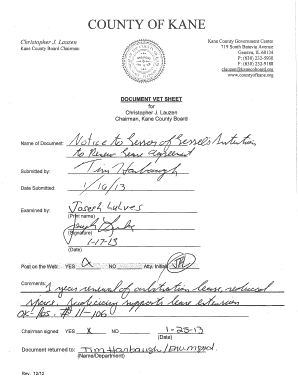 COUNTY OF KANE
Christopher J. Lauzen
Kane County Board Chairman
Kane County Government Center
719 South Batavia Avenue
Geneva, IL 60134
P: (630) 232-5930
F: (630) 232-9188
clauzen@kanecoboard.org
www.countyofkane.org
DOCUMENT VET SHEET
for
Christopher J. Lauzen
Chairman, Kane County Board
Name of Document: Notice to Lessor of Lessee's Intention
to Renew Lease Agreement
Submitted by: Tim Harbaugh
Date Submitted: 1/19/13
Examined by: Joseph Lulves
(Print name)
(Signature)
1-17-13
(Date)
Post on the Web: YES NO Atty. Initials
Comments: 1 year renewal of arbitration lease, reduced
space. Judiciary supports lease extension
OK- Res. # 11-106
Chairman signed: YES X NO 1-25-13
(Date)
Document returned to: Tim Harbaugh / Env. Mgmt
(Name/Department)
Rev. 12/12